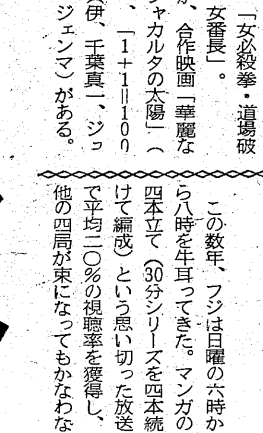 「女必殺拳・道場破
女番長」。
、合作映画「華麗な
ャカルタの太陽」（
、「1＋1＝100
伊、千葉真一、ジョ
ジェンマ）がある。
この数年、フジは日曜の六時か
ら八時を牛耳ってきた。マンガの
四本立て（30分シリーズを四本続
けて編成）という思い切った放送
で平均二〇％の視聴率を獲得し、
他の四局が束になってもかなわな